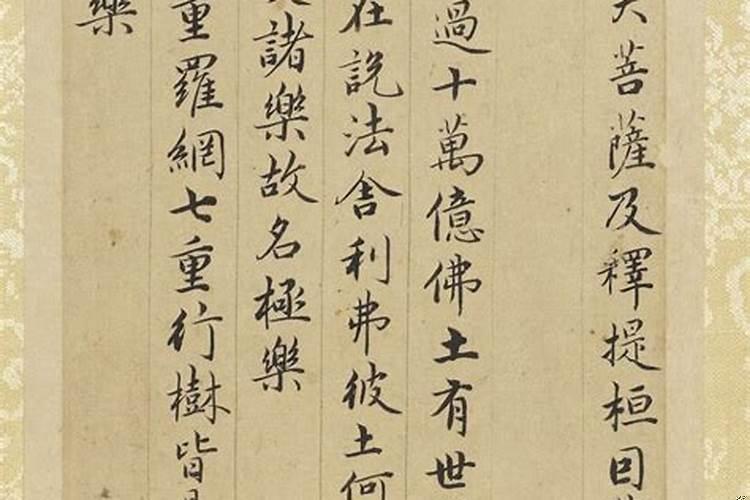 大菩薩及釋提桓因
過十萬億佛土有世
在說法舍利弗彼土何
諸樂故名極樂
重羅網七重行樹皆
樂